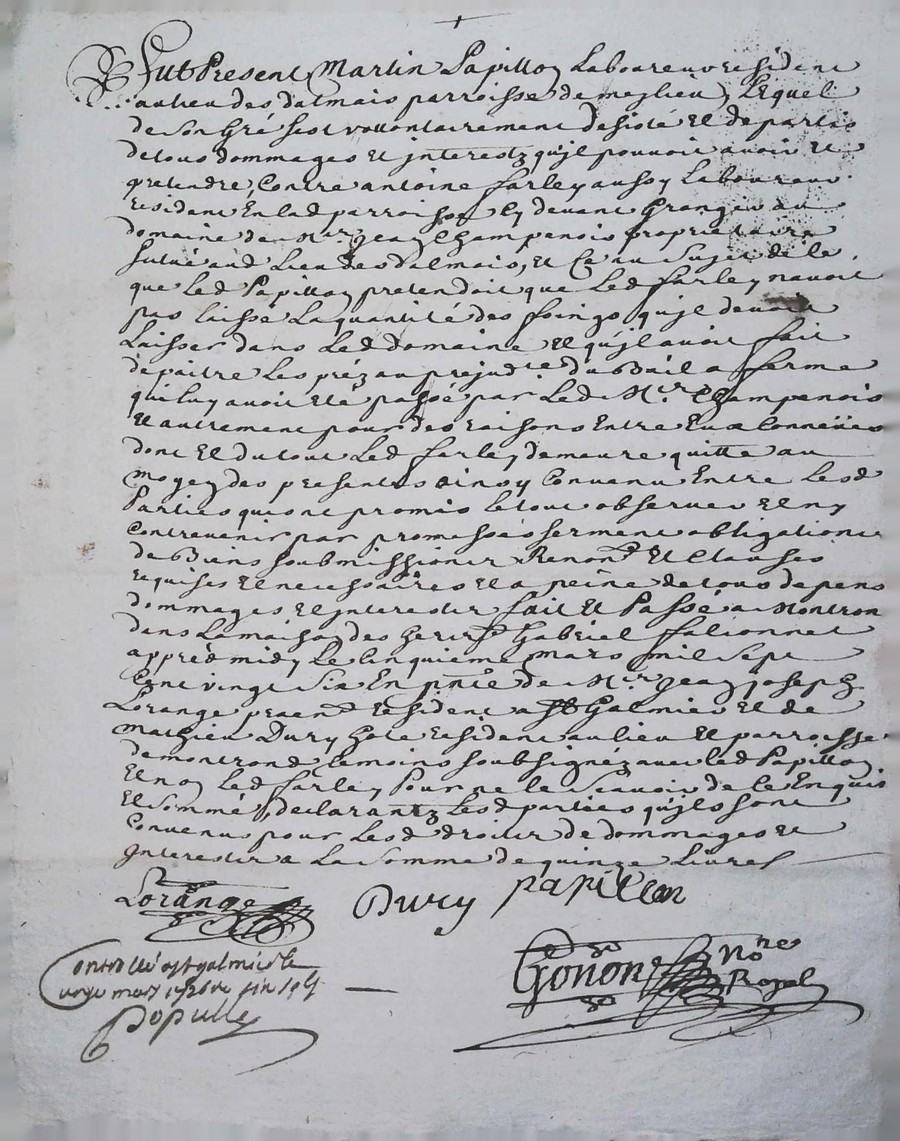 Fut Present Martin Papillon Laboureur residant
au lieu des dalmais parroisse de meylieu, Lequel
de son Gré s'est vollontairement desisté Et departis
de tous dommages Et jnterestz qu'jl pouvoit avoir Et
pretendre Contre antoine farley aussy Laboureur
residant En lad parroisse Cy devant Granger du
domaine de Mr. jean Champenois proprietaire
situé aud Lieu des dalmais, Et Ce au Sujet de ce
que Led Papillon pretendoit que Led farley n'avoit
pas laissé La quantité des foings qu'jl devoit
Laisser dans Led domaine Et qu'jl avoit fait
depaitre Les préz au prejudice du Bail a ferme
qui luy avoit Eté passé par Led Mr. Champenois
Et autrement pour des raisons Entre Eux Connuës
dont Et du tout Led farley demeure quitte au
moyen des presentes ainsy Convenu Entre Lesd
Parties qui ont promis Le tout observer Et ny
Contrevenir par promesses serment obligations
de Biens soubmissions Renonõn Et Clauses
requises Et necessaires Et a peine de tous depens
dommages Et jnterests fait Et Passé a Montron
dans La maison des Gabriel fallonnet
apprés midy Le Cinquieme mars mil Sept
Cent vingt Six En pnce de Mr. jean joseph
Lorange residant a St Galmier Et de
Mathieu Dury hote residant au lieu Et parroisse
de montrond temoins soubsignéz avec led Papillon
Et non Led farley Pour ne le Scavoir de ce Enquis
Et Sommé, declarantz Lesd parties qu'jls sont
Convenus pour Lesd droits de dommages Et
Interests a La Somme de quinze Livres
Lorange Dury papillon
Controllé a st galmier le
unze mars 1726
Gonon No.re
Royal
populle